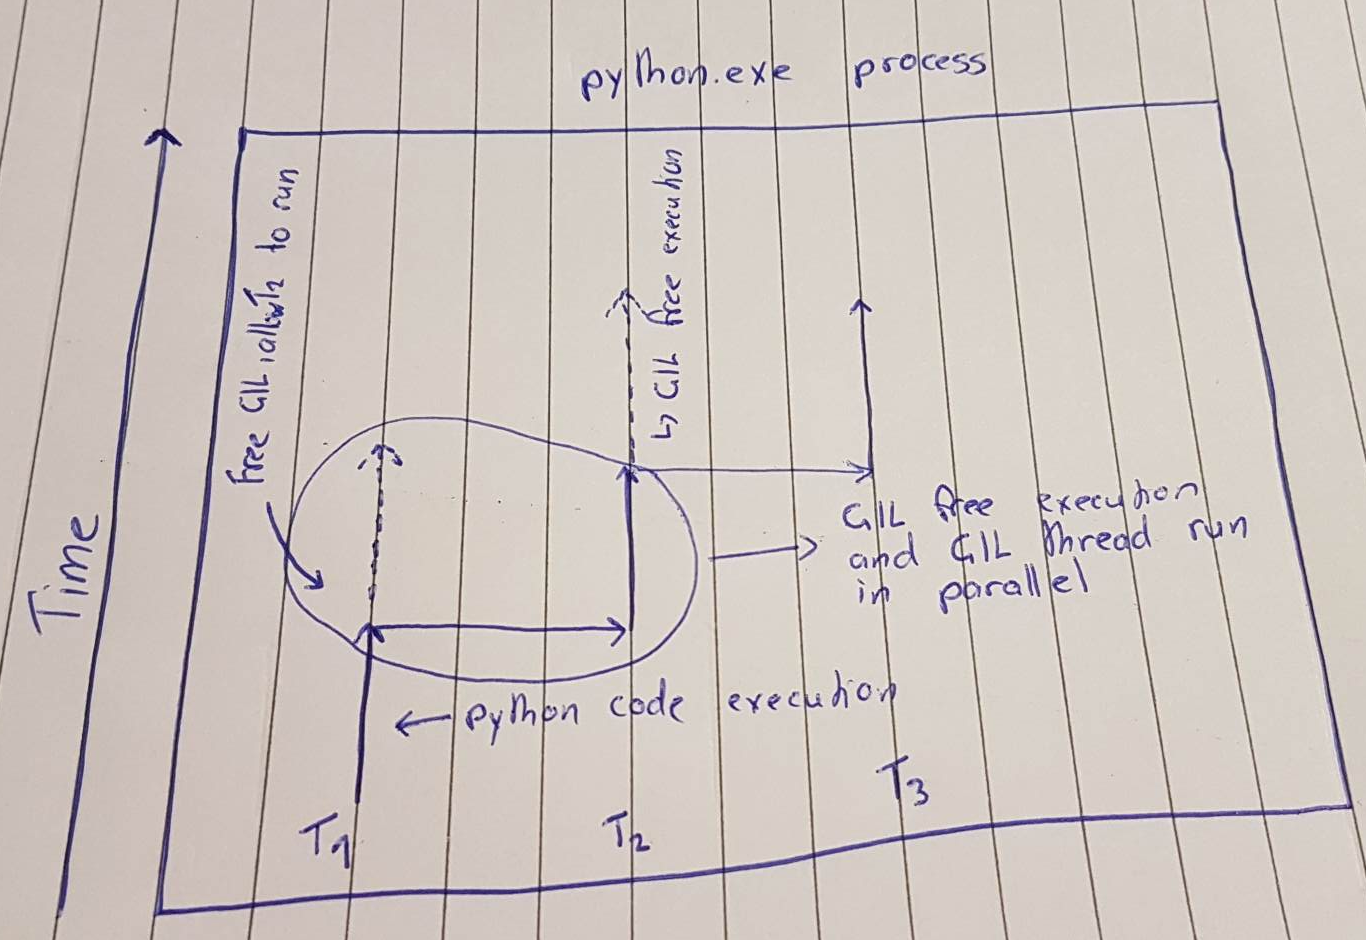 python.exe process
Time
Free GIL, allow T2 to run
↳ GIL free execution
GIL free execution
and GIL thread run
in parallel
← python code execution
T1
T2
T3